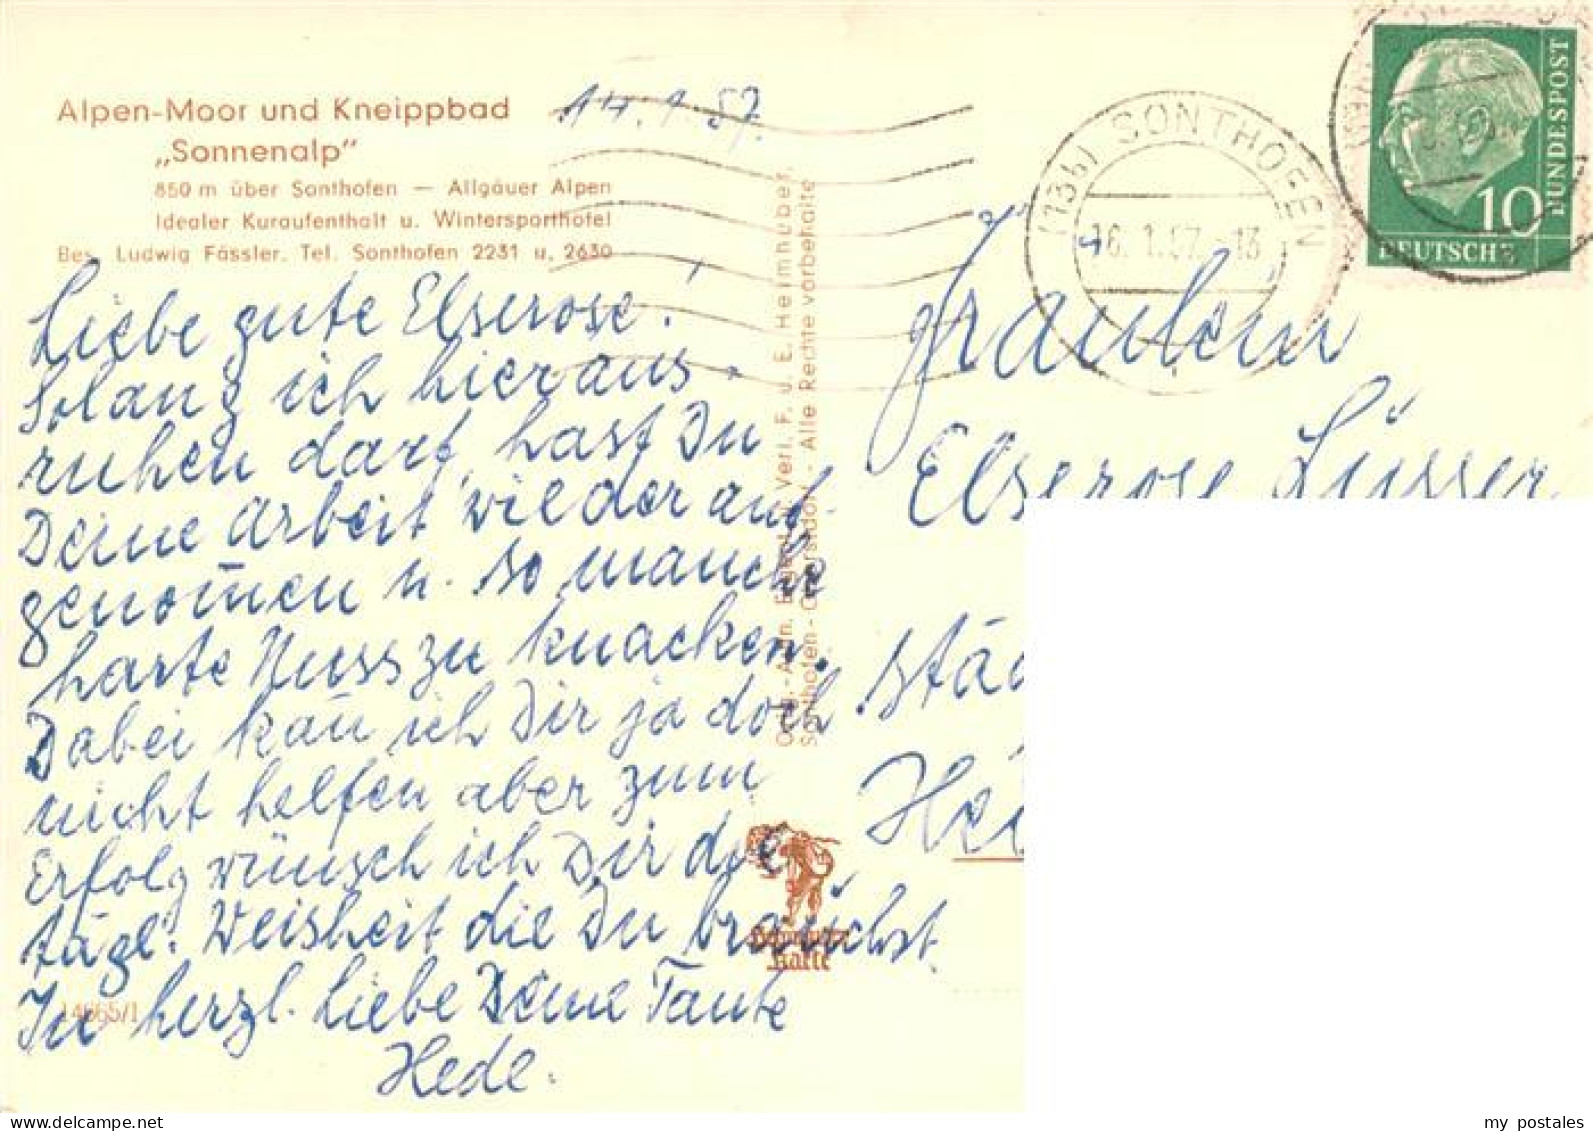 Alpen-Moor und Kneippbad
„Sonnenalp"
850 m über Sonthofen — Allgäuer Alpen
Idealer Kuraufenthalt u. Wintersporthotel
Bes. Ludwig Fässler. Tel. Sonthofen 2231 u. 2630
14.1.57.
Liebe gute Elserose!
Solang ich hier aus-
ruhen darf, hast Du
Deine Arbeit wieder auf-
genom̄en u. so manche
harte Nuss zu knacken.
Dabei kan̄ ich Dir ja doch
nicht helfen aber zum
Erfolg wünsch ich Dir die
tägl. Weisheit die Du brauchst.
In herzl. Liebe Deine Tante
Hede.
14665/1
Verl. F. u. E. Heimhuber,
Sonthofen - Oberstdorf - Alle Rechte vorbehalten
Karte
(13b) SONTHOFEN
16.1.57.-13
DEUTSCHE
BUNDESPOST
10
Fräulein
Elserose
my postales